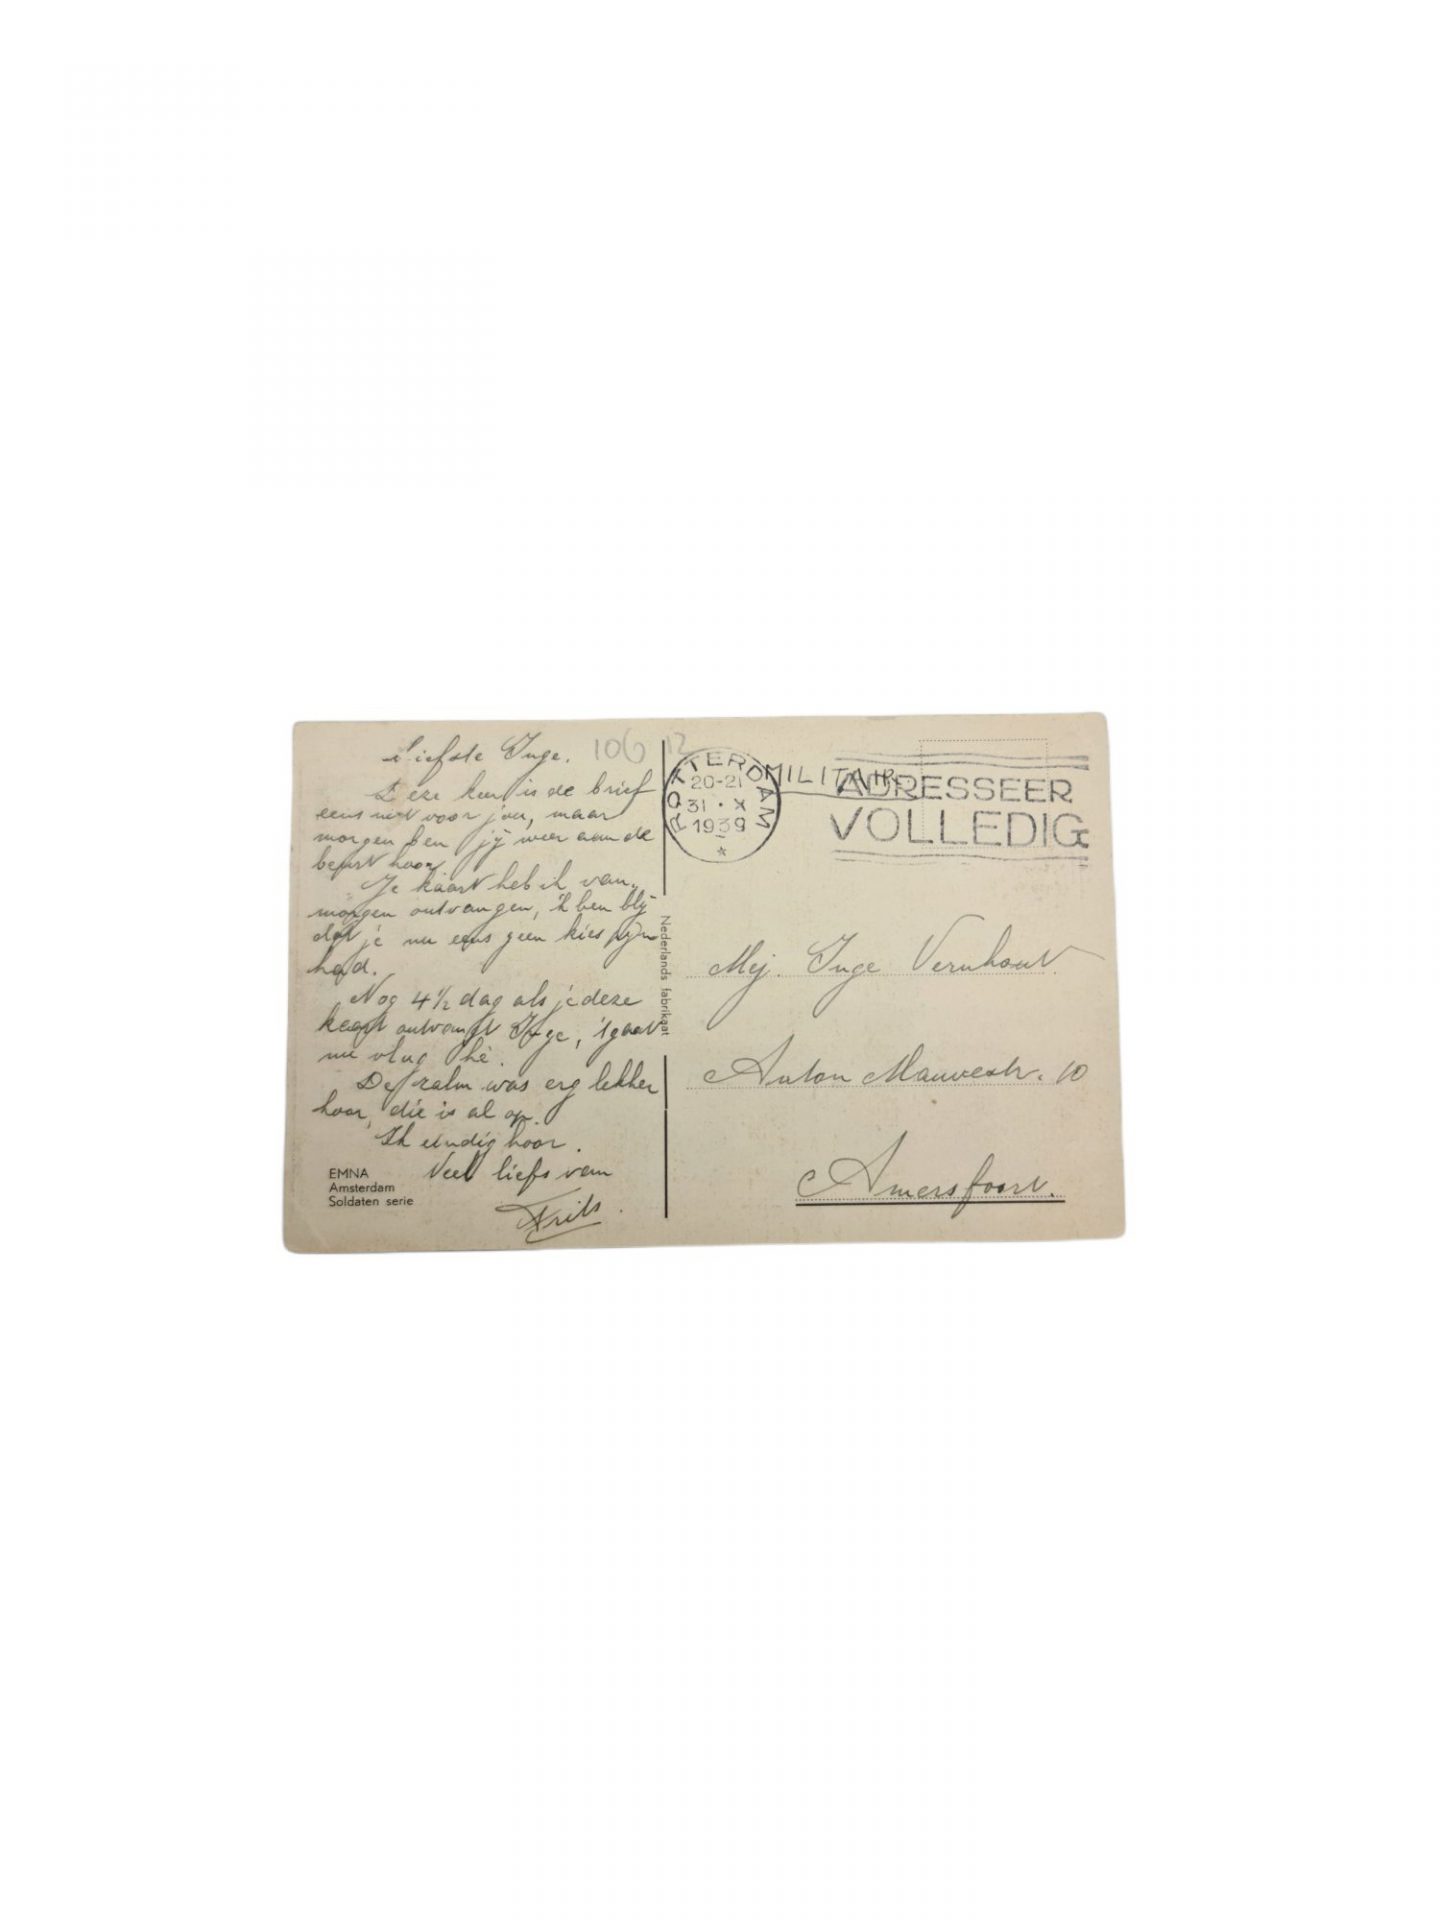 Liefste Inge.
Deze keer is de brief
eens niet voor jou, maar
morgen ben jij weer aan de
beurt hoor.
Je kaart heb ik van-
morgen ontvangen, 'k ben blij
dat je nu eens geen kiespijn
had.
Nog 4½ dag als je deze
kaart ontvangt Inge, 't gaat
nu vlug hè.
De zalm was erg lekker
hoor, die is al op.
Ik eindig hoor.
Veel liefs van
Frits.
EMNA
Amsterdam
Soldaten serie
106 12
Nederlands fabrikaat
ROTTERDAM
20-21
31 · X
1939
*
MILITAIR
ADRESSEER
VOLLEDIG
Mej. Inge Vernhout.
Anton Mauvestr. 10
Amersfoort.